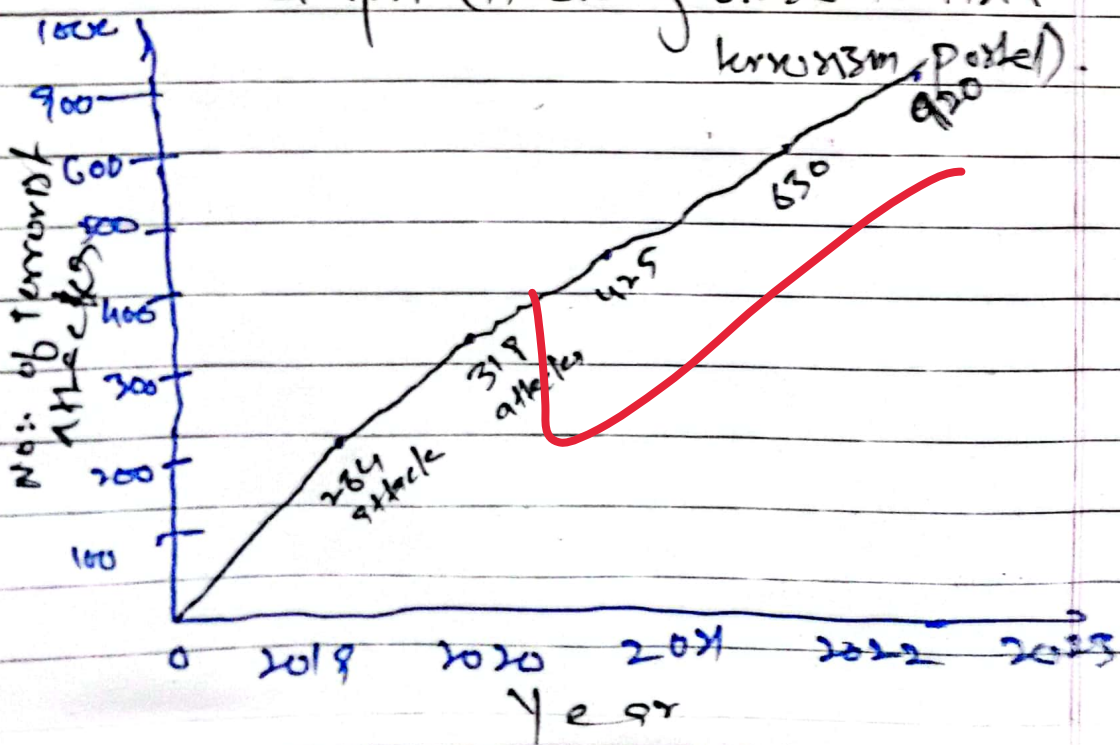 terrorism portal).
1000
900
600
500
400
300
200
100
No: of Terrorist
Attacks
920
630
425
319
attacks
284
attack
0 2019 2020 2021 2022 2023
Year